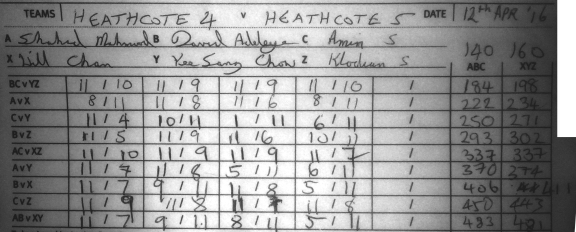 TEAMS HEATHCOTE 4 v HEATHCOTE 5 DATE 12th APR '16
A Shahid Mahmood B David Adeleye C Amin S 140 160
X Lill Chan Y Kee Sang Chow Z Klodian S ABC XYZ
BCvYZ 11 / 10 11 / 9 11 / 9 11 / 10 / 184 198
AvX 8 / 11 11 / 8 11 / 6 8 / 11 / 222 234
CvY 11 / 4 10 / 11 1 / 11 6 / 11 / 250 271
BvZ 11 / 5 11 / 9 11 / 6 10 / 11 / 293 302
ACvXZ 11 / 10 11 / 9 11 / 9 11 / 7 / 337 337
AvY 11 / 7 11 / 8 5 / 11 6 / 11 / 370 374
BvX 11 / 7 9 / 11 11 / 8 5 / 11 / 406 411
CvZ 11 / 9 11 / 8 11 / 7 11 / 8 / 450 443
ABvXY 11 / 7 9 / 11 8 / 11 5 / 11 / 483